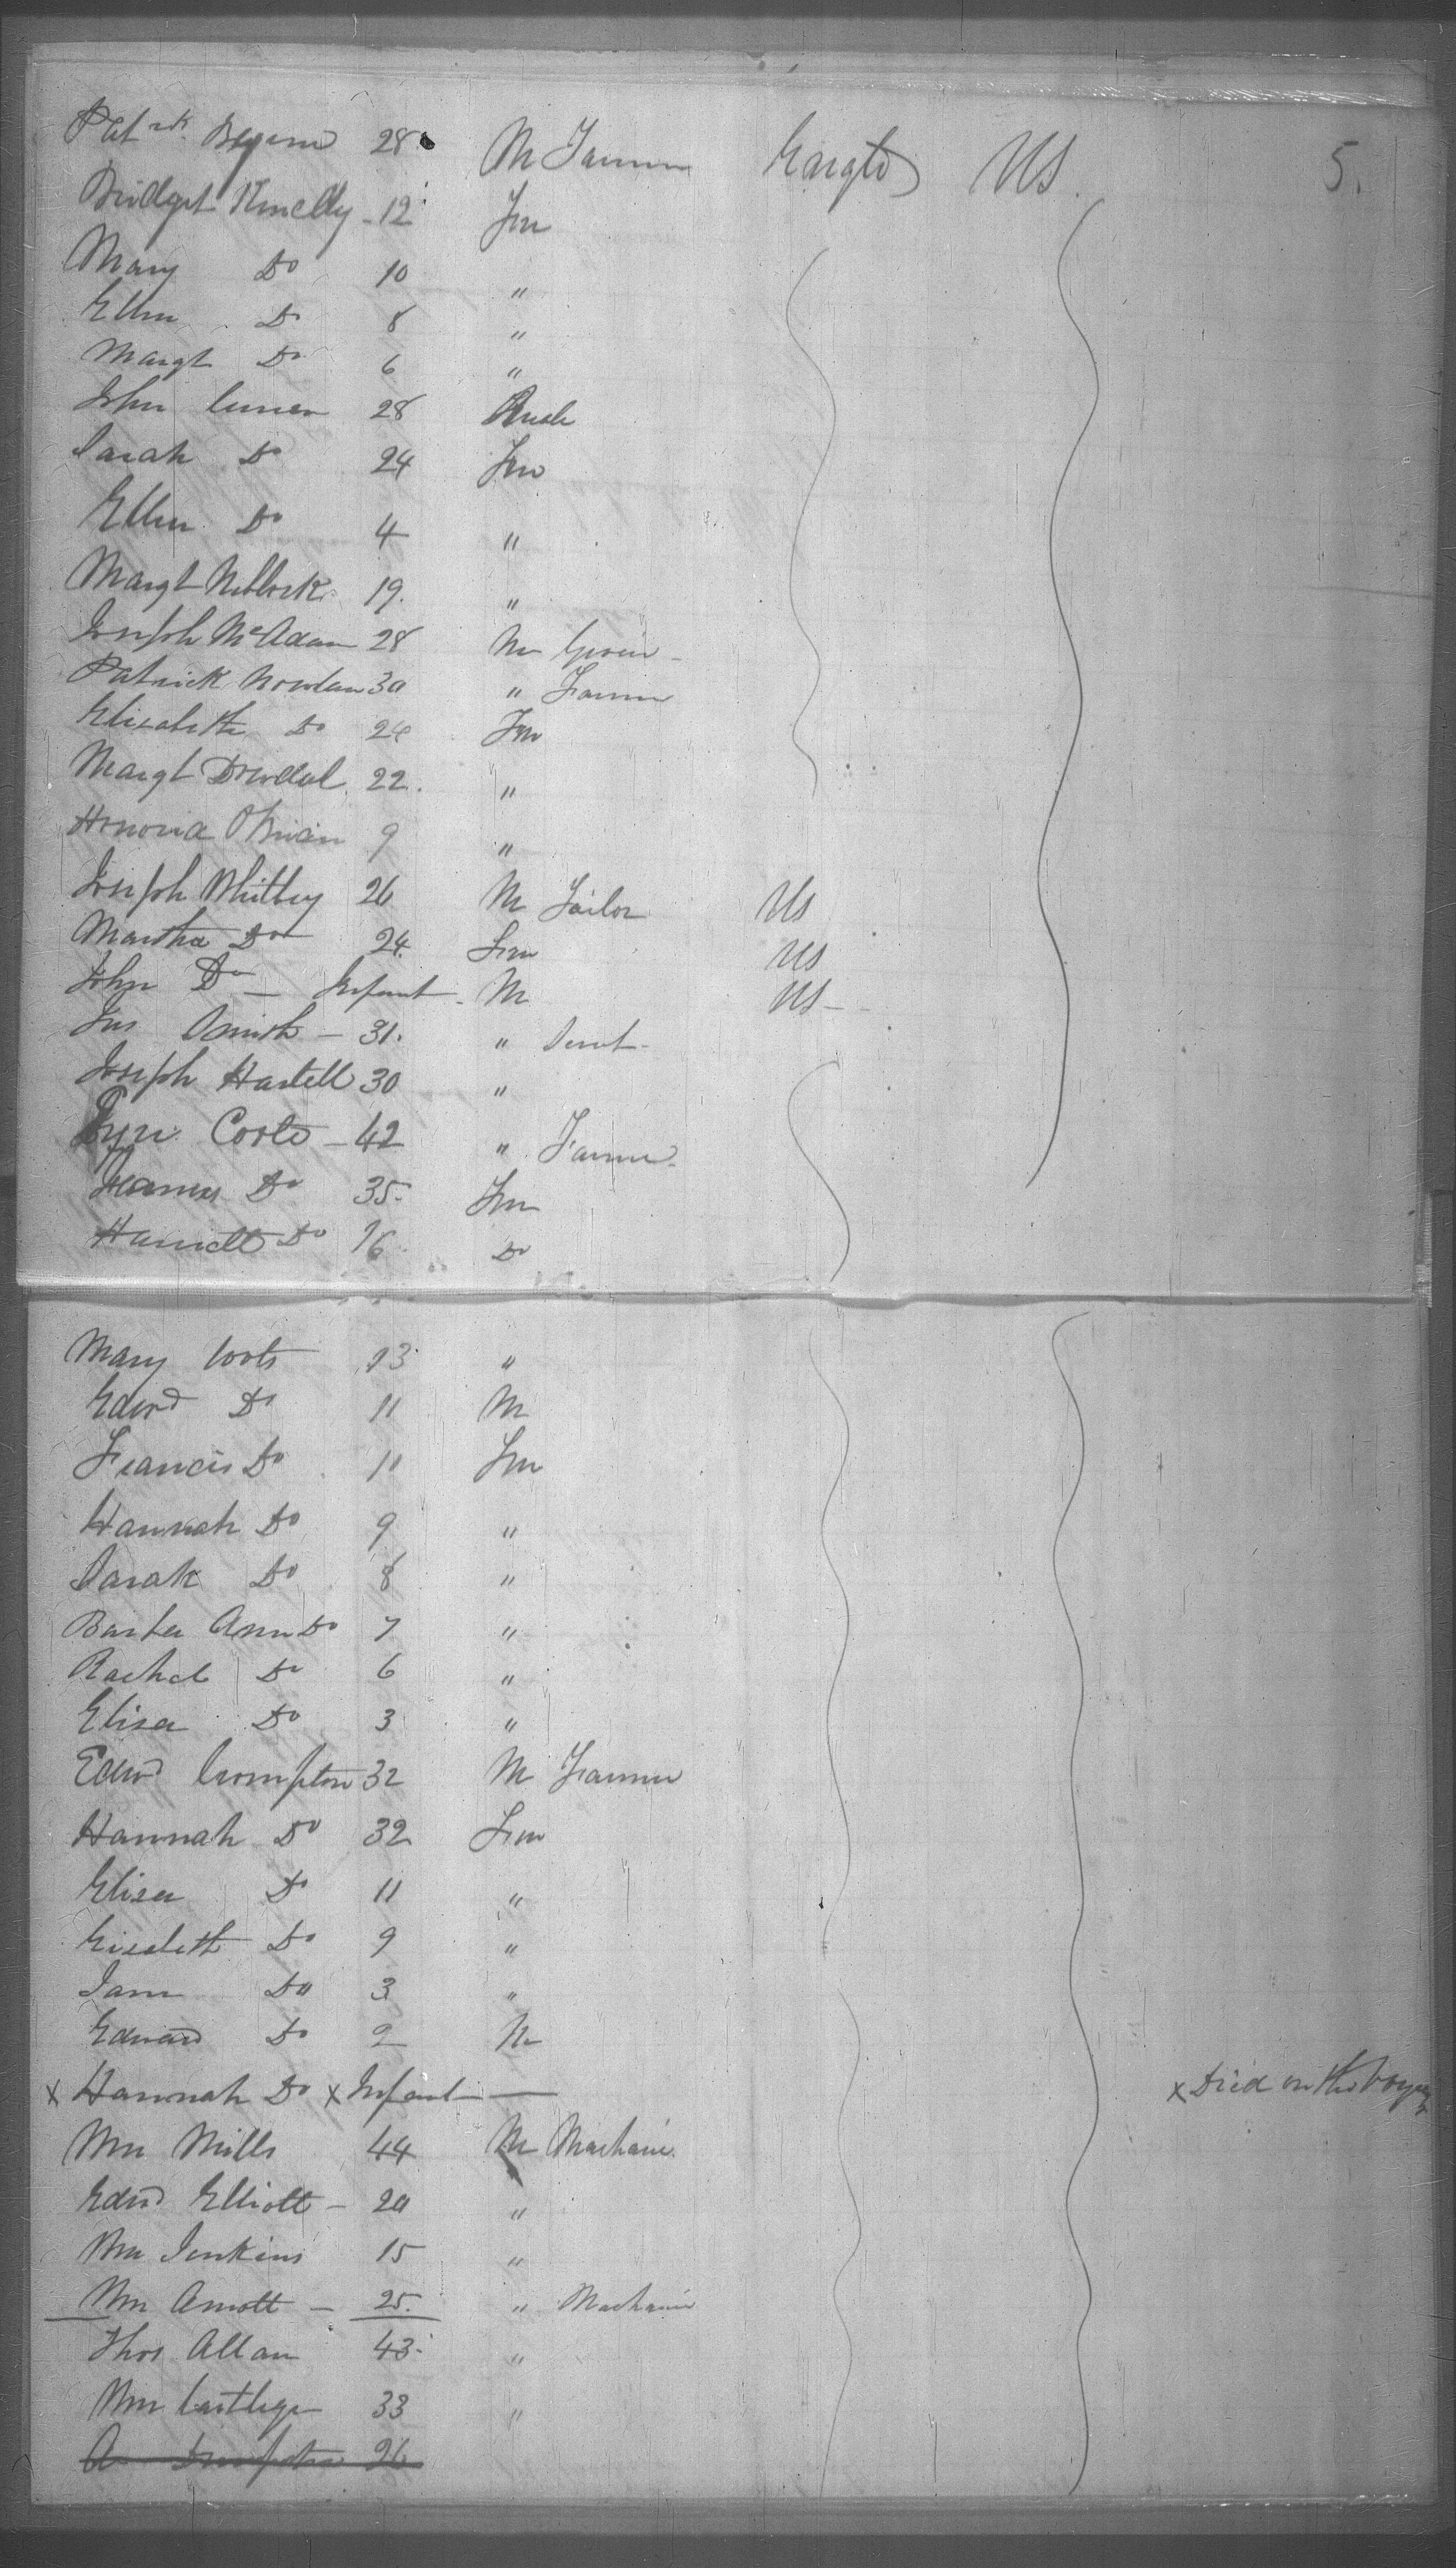 Patrk 28 M Farmer England US. 5.
Bridget Kenelly - 12 Fm
Mary Do 10 "
Ellen Do 8 "
Margt Do 6 "
John 28
Sarah Do 24 Fm
Ellen Do 4 "
Margt Niblock 19. "
Joseph McAdam 28 M
Patrick Nowlan 30 " Farmer
Elizabeth Do 24 Fm
Margt 22. "
Honoria OBrien 9 "
Joseph Whitby 26 M Tailor US
Martha Do 24. Fm US
John Do - Infant - M US -
Jas Smith - 31. " Servt -
Joseph Hartell 30 "
Coots - 42 " Farmer -
Do 35. Fm
Harriett Do 16 Do
Mary Coots 13 "
Edwd Do 11 M
Francis Do 11 Fm
Hannah Do 9 "
Sarah Do 8 "
Ann Do 7 "
Rachel Do 6 "
Eliza Do 3 "
Edwd Crompton 32 M Farmer
Hannah Do 32 Fm
Eliza Do 11 "
Elizabeth Do 9 "
Jane Do 3 "
Edward Do 2 M
x Hannah Do x Infant - x Died on the Voyage
Wm Mills 44 M Mechanic
Edwd Elliott - 20 "
Wm Jenkins 15 "
Wm Arnott - 25. " Mechanic
Thos Allan 43 - "
Wm 33 "
26